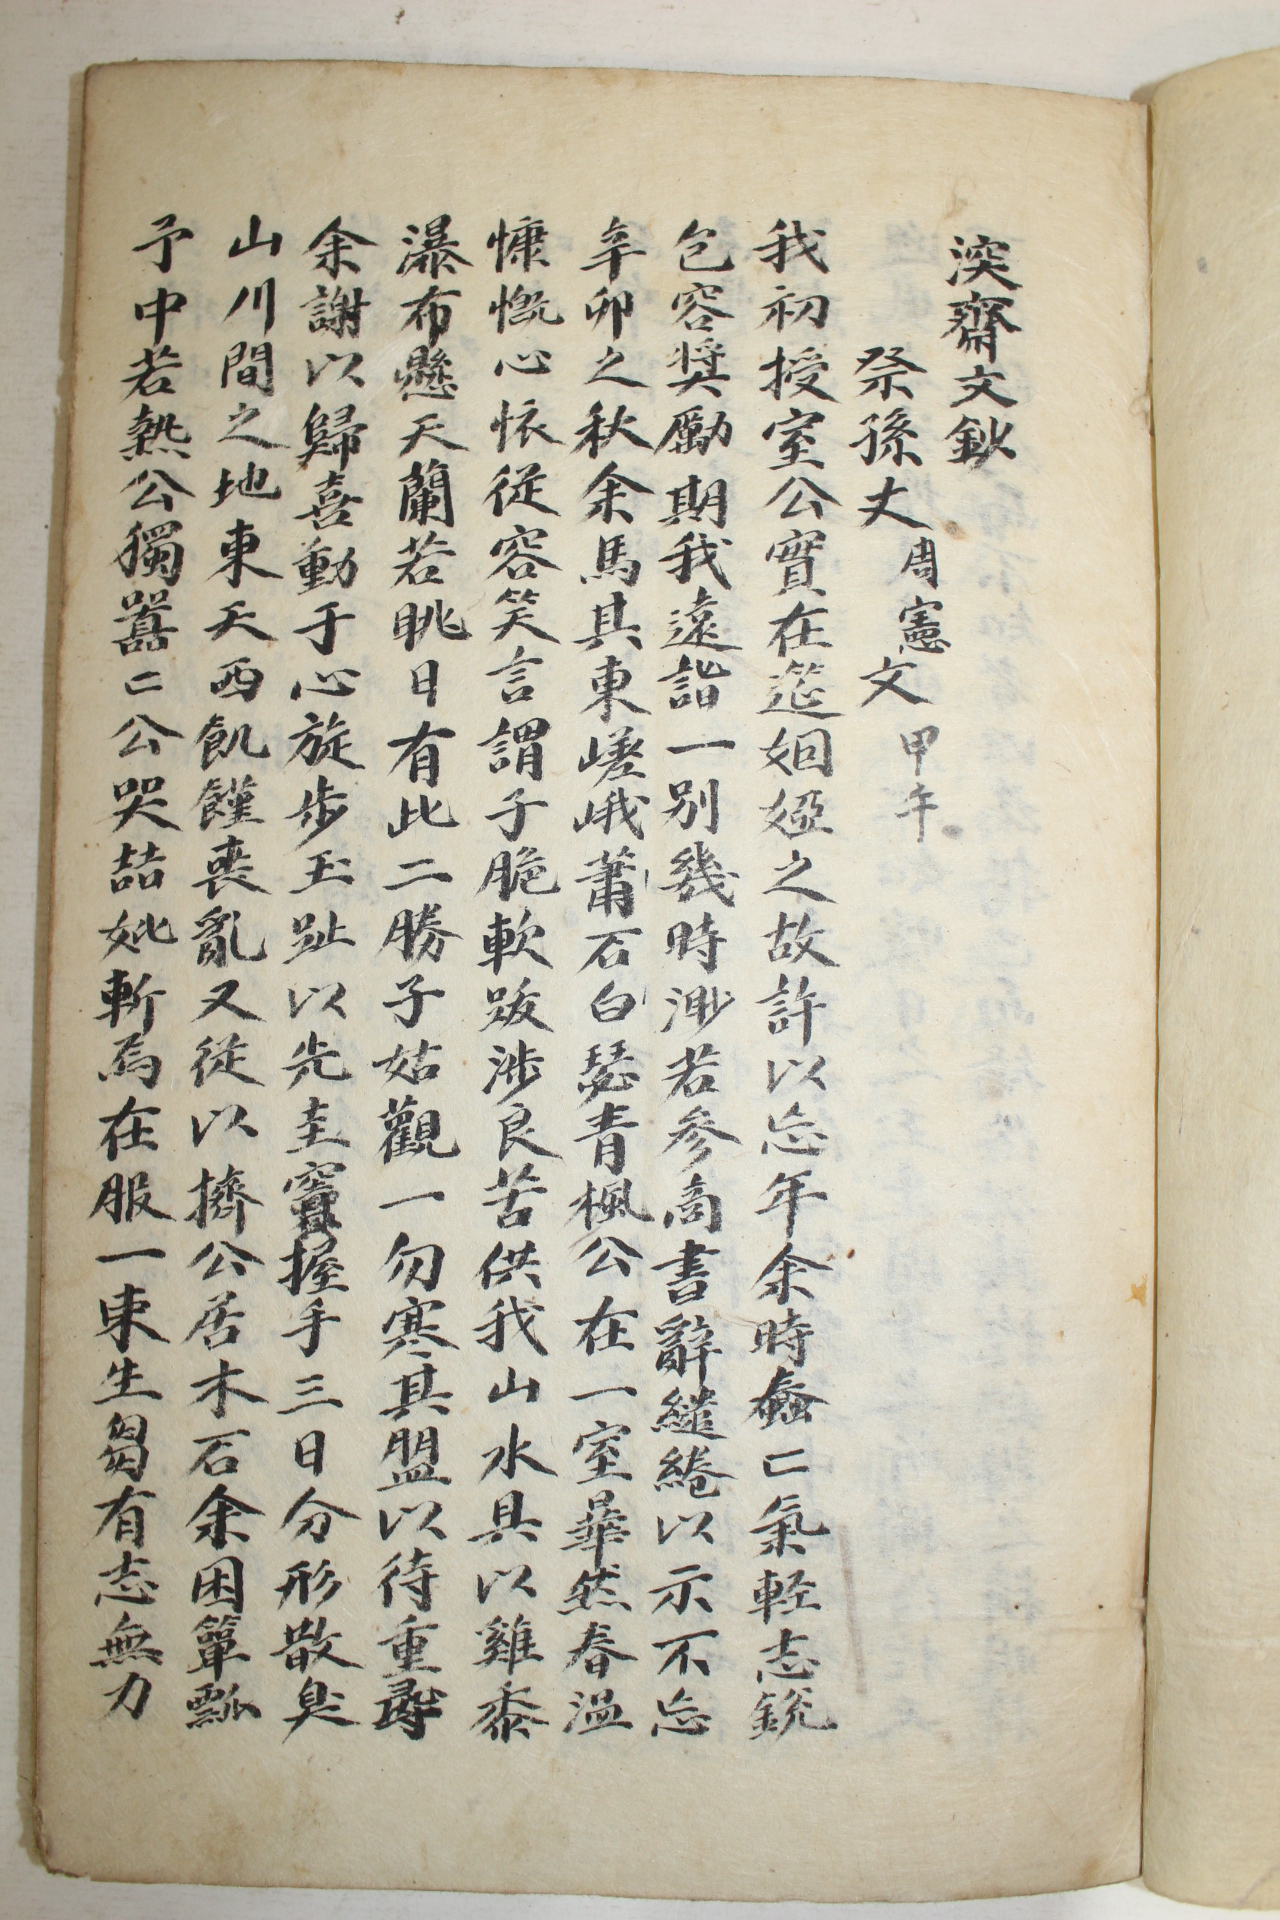 渙齋文鈔
祭孫丈周憲文甲午
我初授室公實在筵姻婭之故許以忘年余時蠢〻氣輕志銳
包容奬勵期我遠詣一別幾時渺若參商書辭繾綣以示不忘
辛卯之秋余馬其東嵯峨蕭石白瑟靑楓公在一室藹然春溫
慷慨心懷從容笑言謂子脆軟跋涉良苦供我山水具以雞黍
瀑布懸天蘭若眺日有此二勝子姑觀一勿寒其盟以待重尋
余謝以歸喜動于心旋步玉趾以先圭竇握手三日分形散臭
山川間之地東天西飢饉喪亂又從以擠公居木石余困簞瓢
予中若熱公獨囂〻公哭喆妣斬焉在服一束生芻有志無力